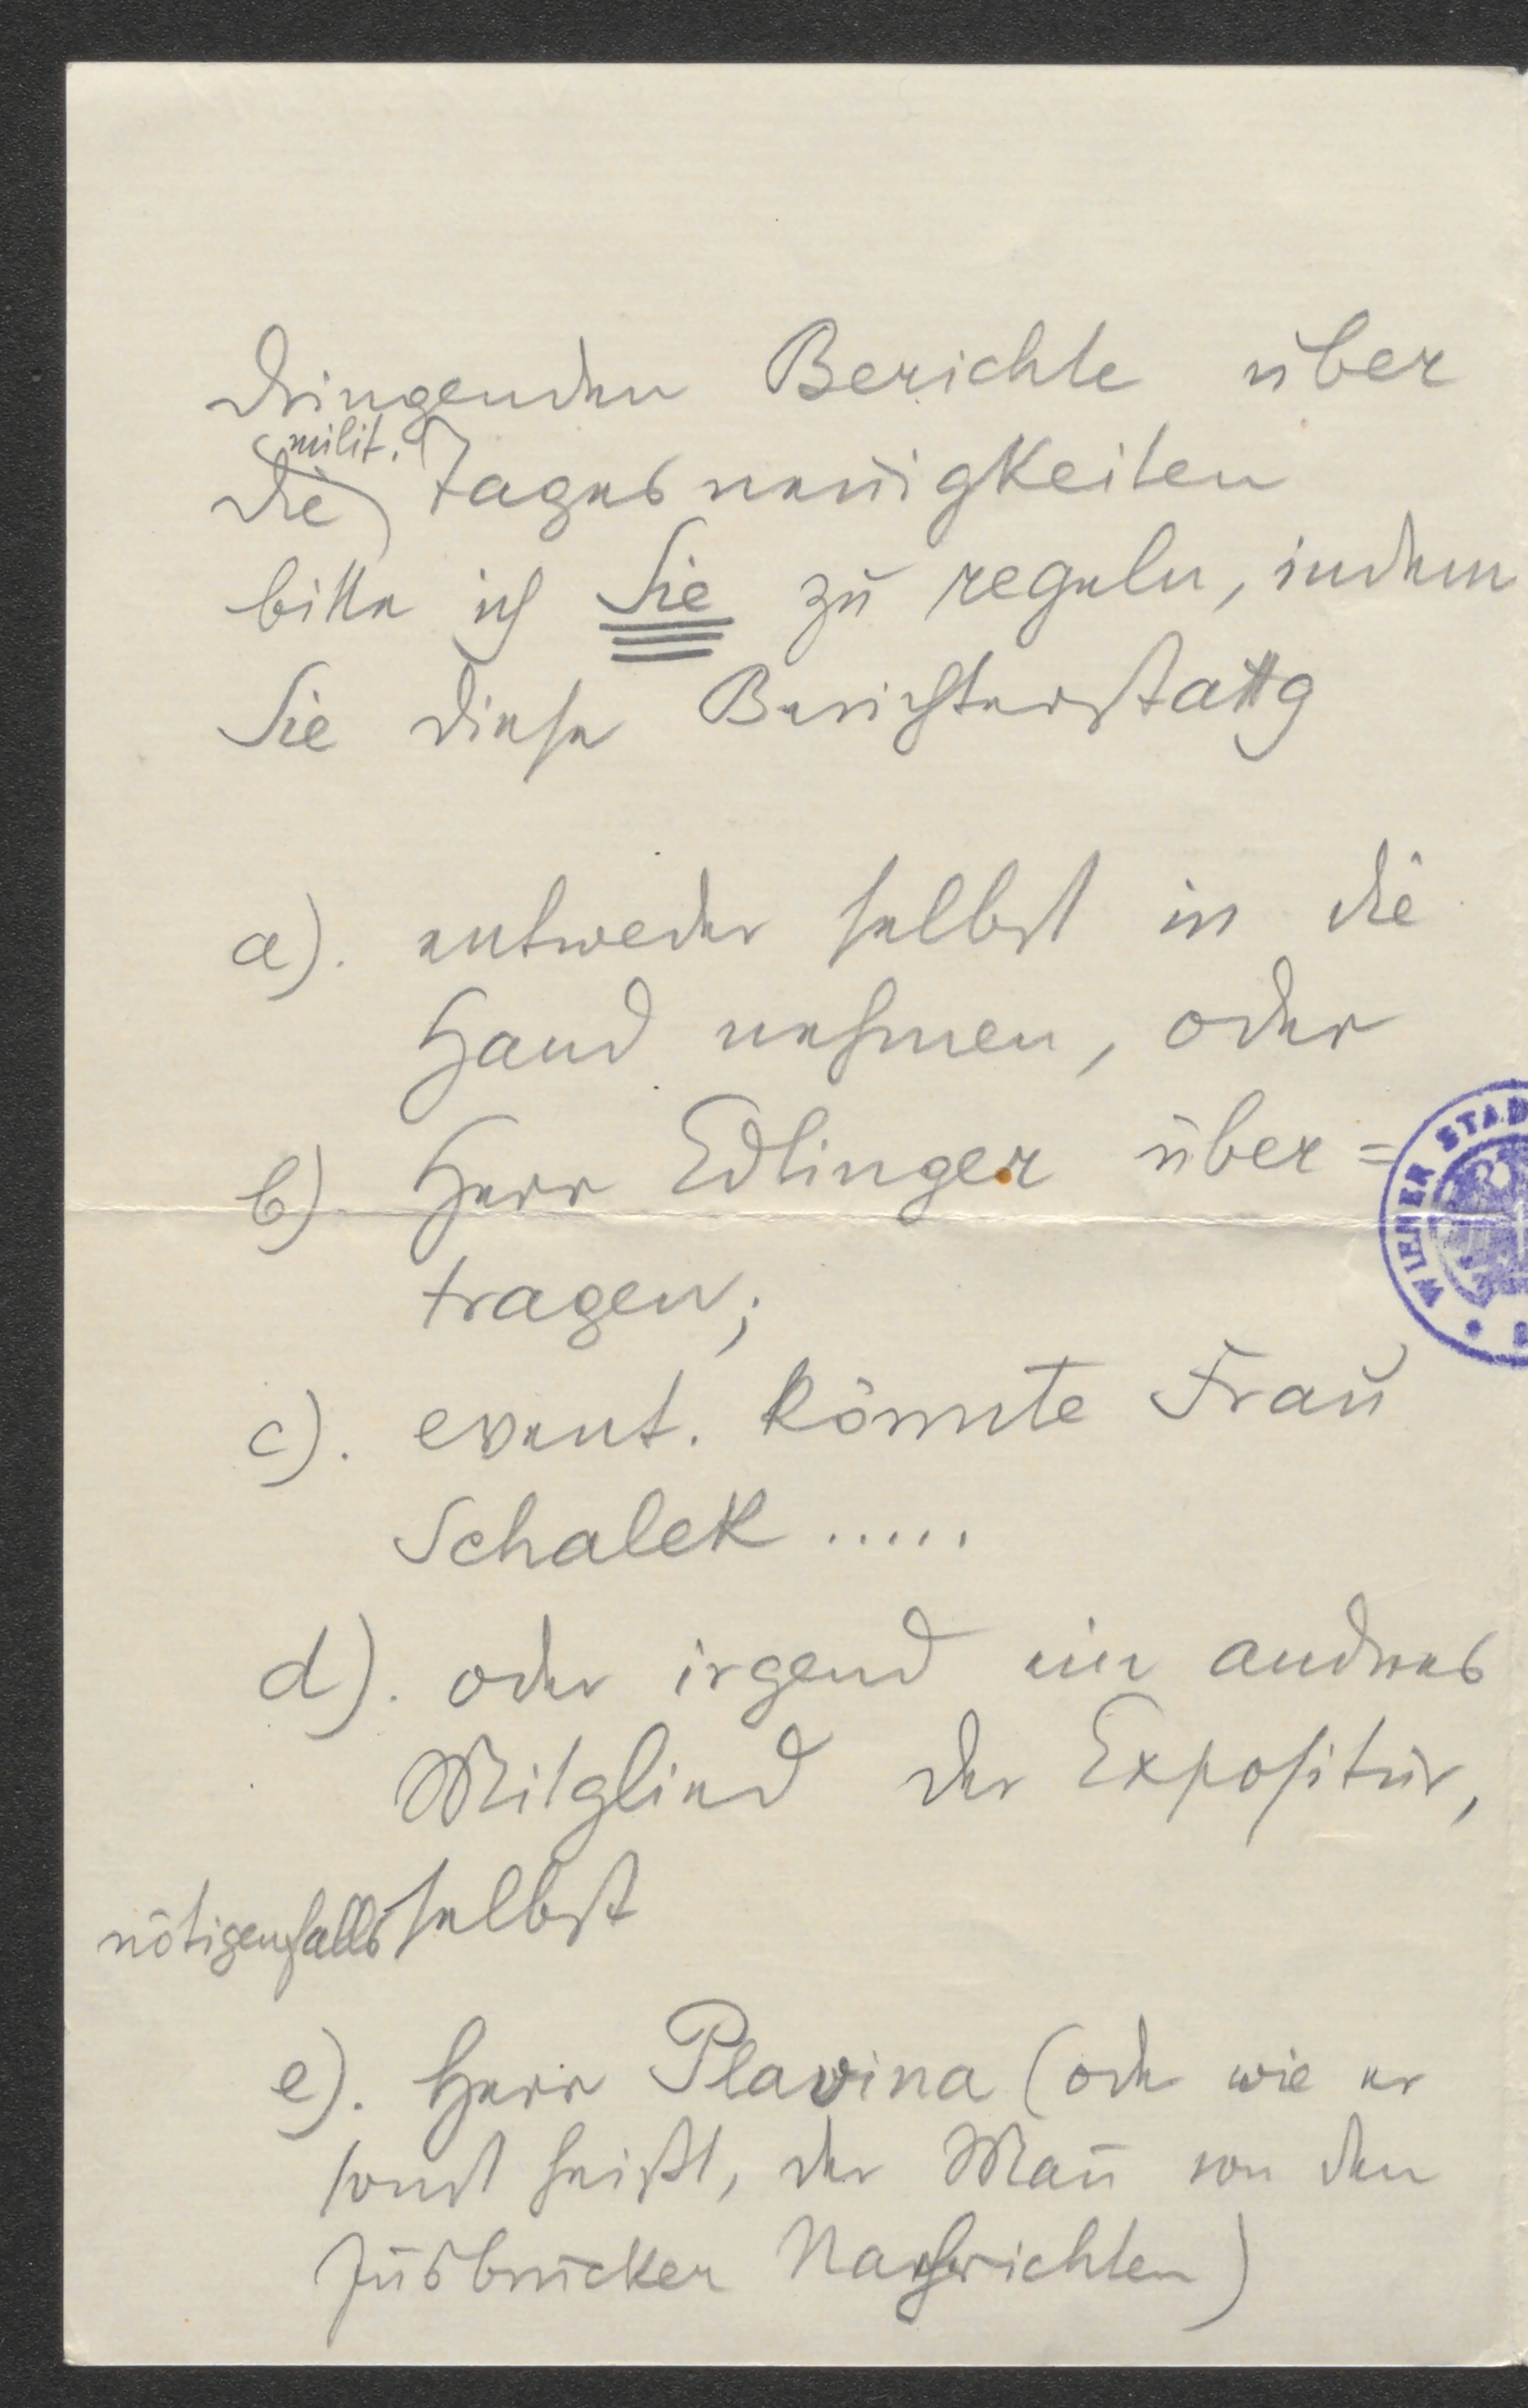 dringenden Berichte über
die milit. Tagesneuigkeiten
bitte ich Sie zu regeln, indem
Sie diese Berichterstattg
a). entweder selbst in die
Hand nehmen, oder
b). Herr Edlinger über=
tragen;
c). event. könnte Frau
Schalek .....
d). oder irgend ein andres
Mitglied der Expositur,
nötigenfalls selbst
e). Herr Plavina (oder wie er
sonst heißt, der Mañ von den
Iñsbrucker Nachrichten)
WIENER STAD